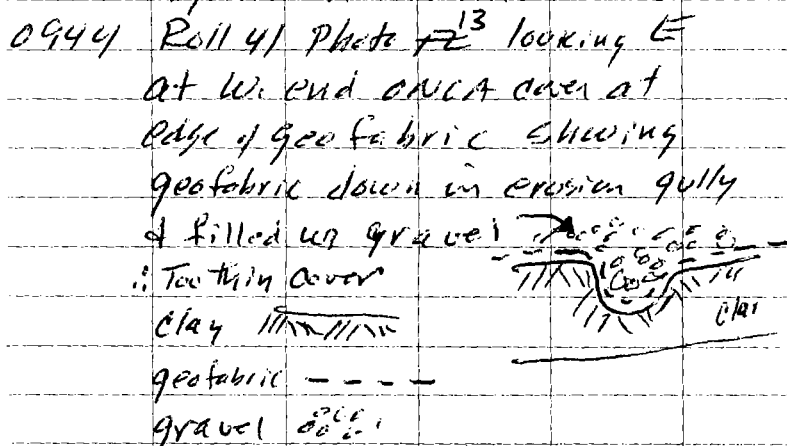 0944 Roll 41 Photo 13 looking E
at W. end ONCA cover at
edge of geofabric showing
geofabric down in erosion gully
& filled w/ gravel
∴ Too thin cover
clay
clay
geofabric
gravel